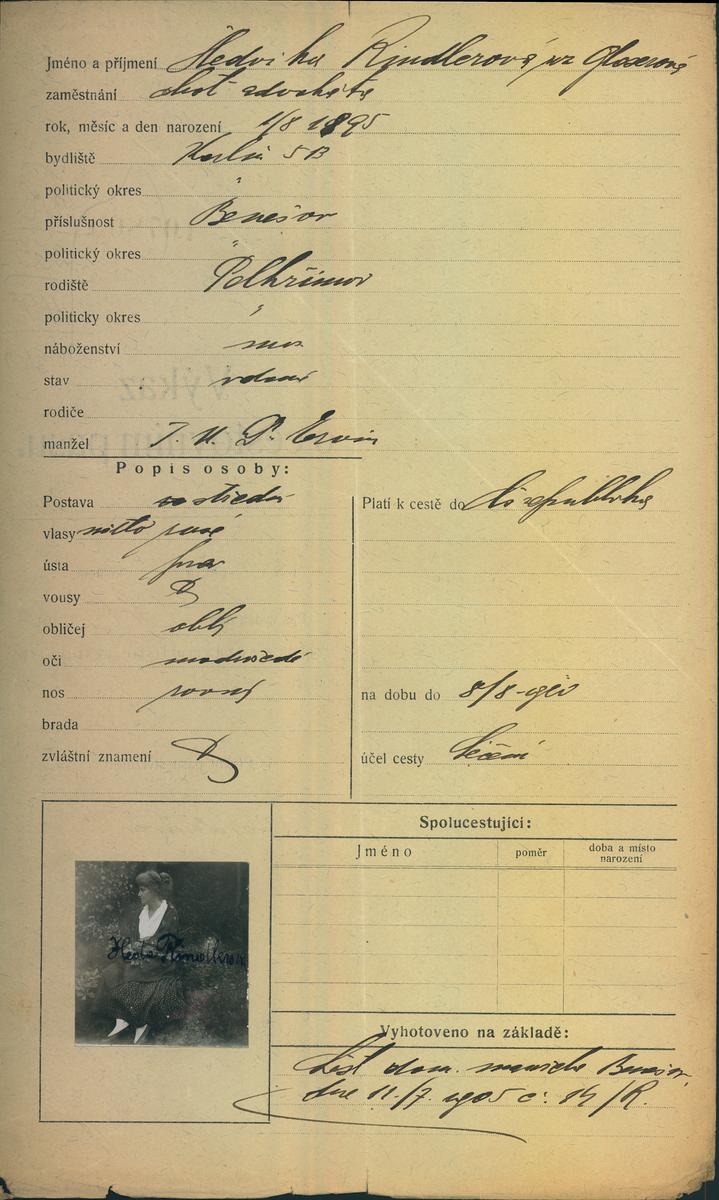 Jméno a příjmení Hedvika Rindlerová, roz Glaserová
zaměstnání choť advokáta
rok, měsíc a den narození 1/8 1895
bydliště Karlín 5B
politický okres "
příslušnost Benešov
politický okres "
rodiště Pelhřimov
politicky okres "
náboženství
stav vdaná
rodiče
manžel J. U. Dr. Ervin
Popis osoby:
Postava střední
Platí k cestě do republiky
vlasy
ústa
vousy
obličej oblý
oči modrošedé
nos rovný
na dobu do 8/8
brada
zvláštní znamení
účel cesty léčení
Spolucestující:
Jméno poměr doba a místo narození
Heda Rindlerová
Vyhotoveno na základě:
List dom. Benešov
dne 11/7 č. 14/R.